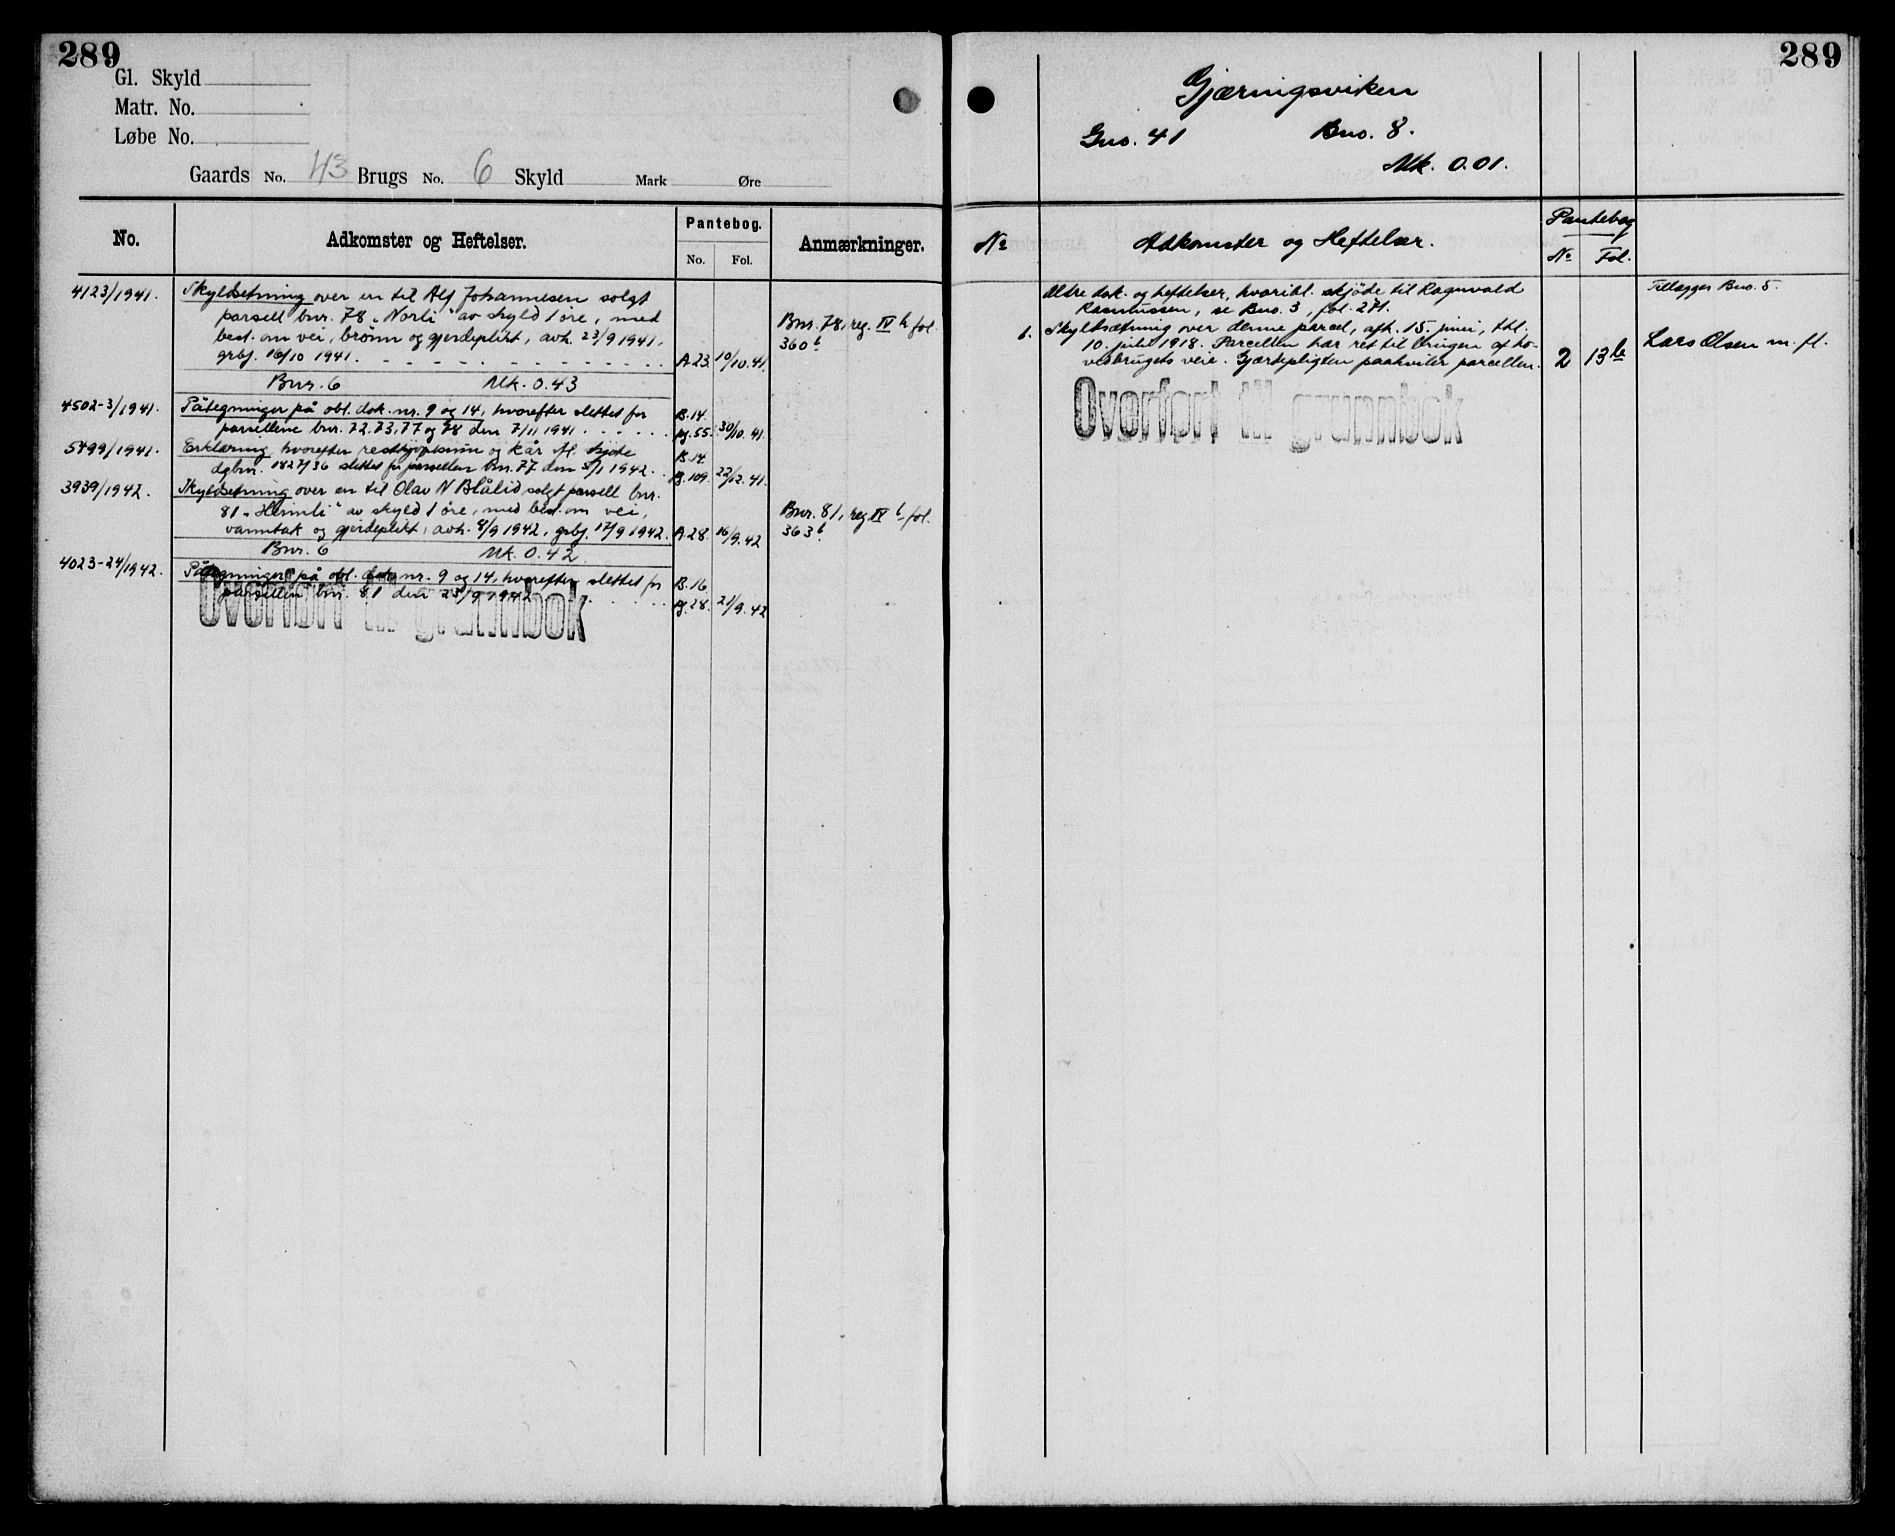 289
Gl. Skyld
Matr. No.
Løbe No.
Gaards No. 43 Brugs No. 6 Skyld Mark Øre
No. Adkomster og Heftelser. Pantebog. No. Fol. Anmærkninger.
4123/1941. Skyldsetning over en til Alf Johannesen solgt
parsell bnr. 78 „Norli" av skyld 1 øre, med Bnr. 78, reg. IV b fol.
best. om vei, brønn og gjerdeplikt, avh. 23/9 1941, 360 b
grbj. 16/10 1941. A.23. 10/10.41.
Bnr. 6 Mk. 0.43
4502-3/1941. Påtegninger på obl. dok. nr. 9 og 14, hvorefter slettet for B.14
parsellene bnr. 72, 73, 77 og 78 den 7/11 1941 pg.55. 30/10.41.
5499/1941. Erklæring hvorefter restkjøpesum og kår ifl. skjøte B.14
dgbnr. 1827/36 slettet for parsellen bnr. 77 den 5/1 1942. 109. 22/12.41.
3939/1942. Skyldsetning over en til Olav N Blålid solgt parsell bnr.
81 „Heimli" av skyld 1 øre, med best. om vei, Bnr. 81, reg IV b fol.
vanntak og gjerdeplikt, avh. 8/9 1942, grbj. 17/9 1942. A.28. 16/9.42 363 b
Bnr. 6 Mk. 0.42
4023-24/1942. Påtegninger på obl. dok. nr. 9 og 14, hvorefter slettet for B.16
parsellen bnr. 81 den 23/9 1942 pg.28. 21/9.42
Overført til grunnbok
289
Gjærningsviken
Gno. 41 Bno. 8.
Mk. 0.01.
No Adkomster og Heftelser. Pantebog No Fol.
Ældre dok. og heftelser, hvoribl. skjöde til Ragnvald Tillægges Bno. 5
Rasmussen, se Bno. 3, fol. 271.
1. Skyldsætning over denne parcel, afh. 15. juni, thl. Lars Olsen m. fl.
10. juli 1918. Parcellen har ret til brugen af ho-
vedbrugets veie. Gjærdepligten paahviler parcellen. 2 13 b
Overført til grunnbok